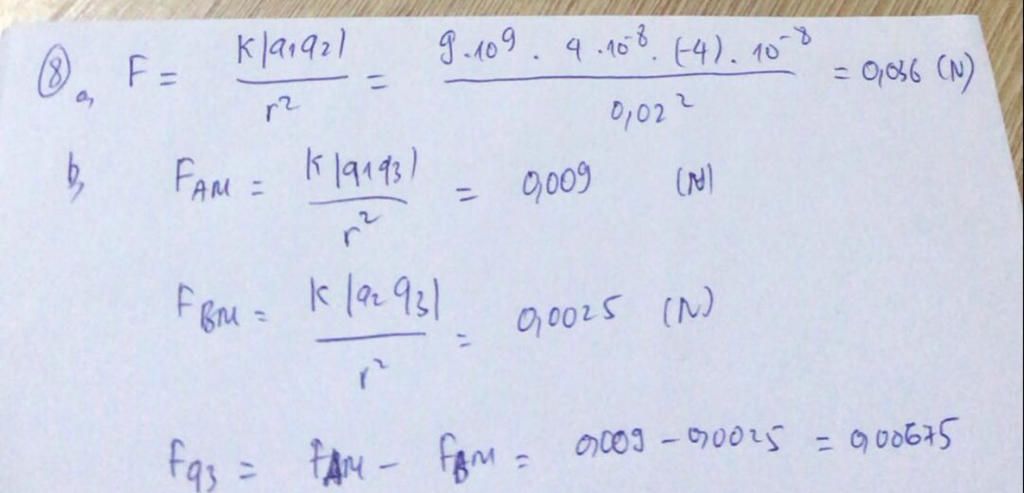 ⑧ a, F = K|q1q2| / r² = 9.10⁹ . 4.10⁻⁸ . (-4) . 10⁻⁸ / 0,02² = 0,036 (N)
b, F_AM = K|q1q3| / r² = 0,009 (N)
F_BM = K|q2q3| / r² = 0,0025 (N)
F_q3 = F_AM - F_BM = 0,009 - 0,0025 = 0,00675